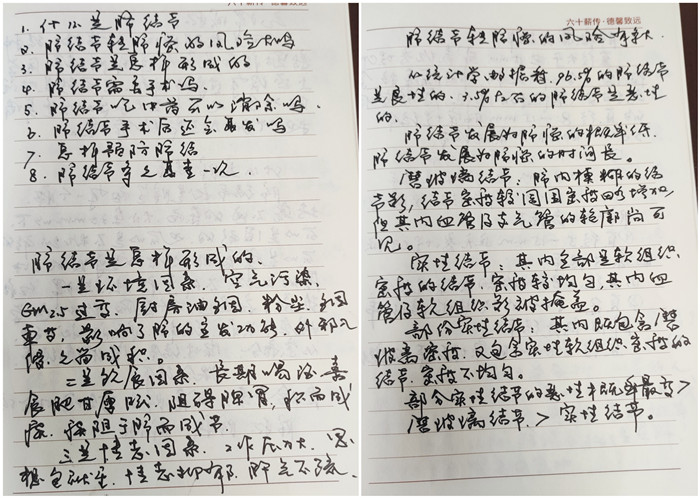 1. 什么是肺结节
2. 肺结节转肺癌的风险大吗
3. 肺结节是怎样形成的
4. 肺结节需要手术吗.
5. 肺结节吃中药可以消除吗.
6. 肺结节手术后还会再发吗
7. 怎样预防肺结
8. 肺结节多久复查一次.
肺结节是怎样形成的.
一是环境因素. 空气污染.
2.5 过高. 厨房油烟. 粉尘. 烟
草等, 影响了肺的宣发功能, 外邪入
侵. 久而成积。
二是饮食因素. 长期喝酒. 喜
食肥甘厚腻. 阻碍脾胃. 积而成
痰. 痰阻于肺而成节.
三是情志因素. 工作压力大. 思
想包袱重. 情志抑郁. 肺气不疏.
六十薪传·德馨致远
肺结节转肺癌的风险有多大.
以统计学数据看. 96.5%的肺结节
是良性的. 3.5%左右的肺结节是恶性
的.
肺结节发展为肺癌的概率低.
肺结节发展为肺癌的时间长。
磨玻璃结节: 肺内模糊的结
节影, 结节密度较周围密度略增加,
但其内血管及支气管的轮廓尚可
见。
实性结节: 其内全部是软组织
密度的结节. 密度较均匀. 其内血
管及软组织影被掩盖。
部份实性结节: 其内既包含磨
玻离密度. 又包含实性软组织密度的
结节. 密度不均匀.
部分实性结节的恶性概率最高 >
磨玻璃结节. > 实性结节.